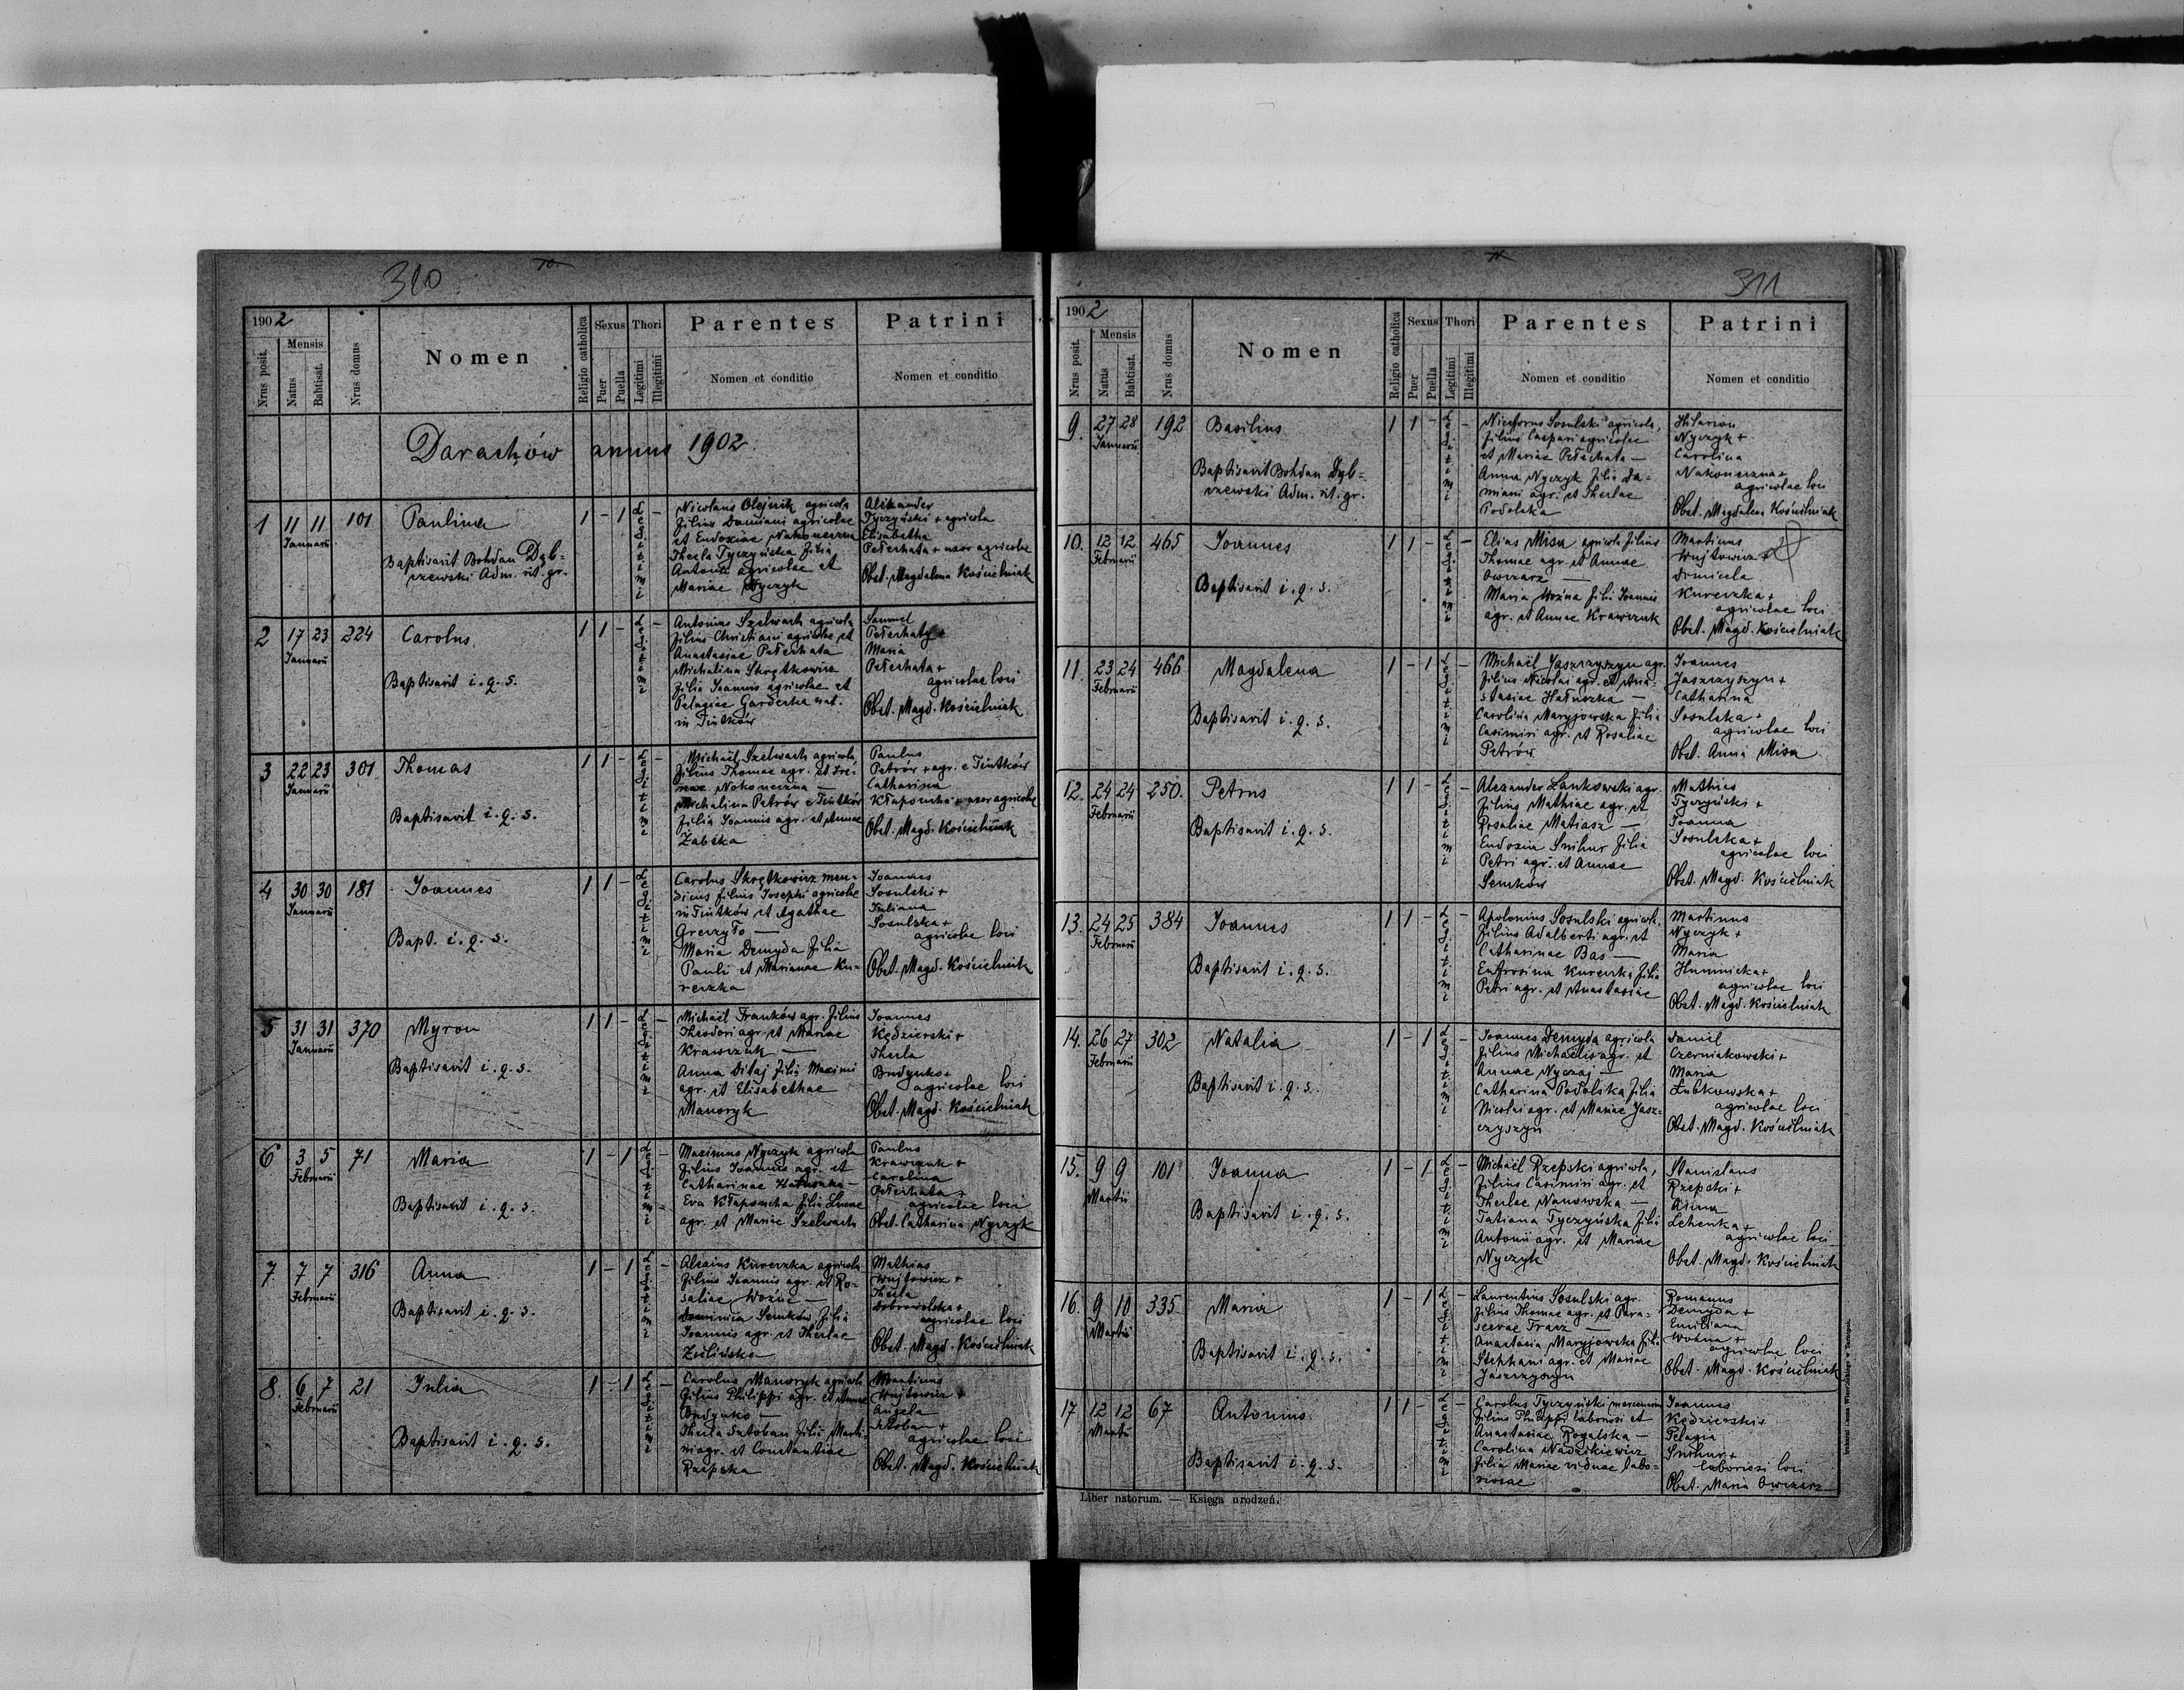 310
1902
Nrus posit.
Mensis
Natus
Babtisat.
Nrus domus
Nomen
Religio catholica
Sexus
Puer
Puella
Thori
Legitimi
Illegitimi
Parentes
Nomen et conditio
Patrini
Nomen et conditio
Darachów annus 1902
1 11 11 Januarii 101 Paulina 1 - 1 Legitimi -
Baptisavit Bohdan Dyb=
rzewski Adm. rit. gr.
Nicolaus Olejnik agricola
filius Damiani agricolae
et Eudoxiae Nakoneczna
Thecla Tyczyńska filia
Antonii agricolae et
Mariae Nyczyk
Alexander
Tyczyński + agricola
Elisabetha
Pełechata + uxor agricolae
Obst. Magdalena Kościelniak
2 17 23 Januarii 224 Carolus 1 1 - Legitimi -
Baptisavit i. q. s.
Antonius Szelwach agricola
filius Christiani agricolae et
Anastasiae Pełechata
Michalina Skrętkowicz
filia Joannis agricolae et
Pelagiae Garderka nat.
in Tiutków
Samuel
Pełechaty +
Maria
Pełechata +
agricolae loci
Obst. Magd. Kościelniak
3 22 23 Januarii 301 Thomas 1 1 - Legitimi -
Baptisavit i. q. s.
Michaël Szelwach agricola
filius Thomae agr. et Ire=
nae Nakoneczna —
Michalina Petrów e Tiutków
filia Joannis agr. et Annae
Żabska
Paulus
Petrów + agr. e Tiutków
Catharina
Kłapoucha + uxor agricolae
Obst. Magd. Kościelniak
4 30 30 Januarii 181 Joannes 1 1 - Legitimi
Bapt. i. q. s.
Carolus Skrętkowicz men=
dicus filius Josephi agricolae
in Tiutków et Agathae
Greczyło —
Maria Demyda filia
Pauli et Marianae Ku=
reczka
Joannes
Sosulski +
Juliana
Sosulska +
agricolae loci
Obst. Magd. Kościelniak
5 31 31 Januarii 370 Myron 1 1 - Legitimi -
Baptisavit i. q. s.
Michaël Franków agr. filius
Theodori agr. et Mariae
Krawczuk —
Anna Ditaj filia Maximi
agr. et Elisabethae
Manoryk
Joannes
Kędzierski +
Thecla
Budynko +
agricolae loci
Obst. Magd. Kościelniak
6 3 5 Februarii 71 Maria 1 - 1 Legitimi -
Baptisavit i. q. s.
Maximus Nyczyk agricola
filius Joannis agr. et
Catharinae Hałuszka —
Eva Kłapoucha filia Lucae
agr. et Mariae Szelwach
Paulus
Krawczuk +
Carolina
Pełechata +
agricolae loci
Obst. Catharina Nyczyk
7 7 7 Februarii 316 Anna 1 - 1 Legitimi -
Baptisavit i. q. s.
Alexius Kureczka agricola
filius Joannis agr. et Ro=
saliae Woźna —
Dominica Semków filia
Joannis agr. et Theclae
Zielińska
Mathias
Wujtowicz +
Thecla
Dobrowolska +
agricolae loci
Obst. Magd. Kościelniak
8. 6 7 Februarii 21 Julia 1 - 1 Legitimi -
Baptisavit i. q. s.
Carolus Manoryk agricola
filius Philippi agr. et Annae
Budynko —
Thecla Jatoban filia Marti=
ni agr. et Constantiae
Rzepska
Martinus
Wujtowicz +
Angela
Jatoban +
agricolae loci
Obst. Magd. Kościelniak
311
1902
Nrus posit.
Mensis
Natus
Babtisat.
Nrus domus
Nomen
Religio catholica
Sexus
Puer
Puella
Thori
Legitimi
Illegitimi
Parentes
Nomen et conditio
Patrini
Nomen et conditio
9. 27 28 Januarii 192 Basilius 1 1 - Legitimi -
Baptisavit Bohdan Dyb=
rzewski Adm. rit. gr.
Niceforus Sosulski agricola,
filius Caspari agricolae
et Mariae Pełechata —
Anna Nyczyk filia Da=
miani agr. et Theclae
Podolska
Hilarion
Nyczyk +
Carolina
Nakoneczna +
agricolae loci
Obst. Magdalena Kościelniak
10. 12 12 Februarii 465 Joannes 1 1 - Legitimi -
Baptisavit i. q. s.
Elias Misa agricola filius
Thomae agr. et Annae
Owczarz —
Maria Woźna filia Joannis
agr. et Annae Krawczuk
Martinus
Wujtowicz +
Domicela
Kureczka +
agricolae loci
Obst. Magd. Kościelniak
11. 23 24 Februarii 466 Magdalena 1 - 1 Legitimi -
Baptisavit i. q. s.
Michaël Jaszczyszyn agr.
filius Nicolai agr. et Ana=
stasiae Hałuszka —
Carolina Maryjowska filia
Casimiri agr. et Rosaliae
Petrów
Joannes
Jaszczyszyn +
Catharina
Sosulska +
agricolae loci
Obst. Anna Misa
12. 24 24 Februarii 250. Petrus 1 1 - Legitimi -
Baptisavit i. q. s.
Alexander Lankowski agr.
filius Mathiae agr. et
Rosaliae Matiasz —
Eudoxia Snihur filia
Petri agr. et Annae
Semków
Mathias
Tyczyński +
Joanna
Sosulska +
agricolae loci
Obst. Magd. Kościelniak
13. 24 25 Februarii 384 Joannes 1 1 - Legitimi -
Baptisavit i. q. s.
Apolonius Sosulski agricola,
filius Adalberti agr. et
Catharinae Bas —
Eufrosina Kureczka filia
Petri agr. et Anastasiae
Martinus
Nyczyk +
Maria
Humnicka +
agricolae loci
Obst. Magd. Kościelniak
14. 26 27 Februarii 302 Natalia 1 - 1 Legitimi -
Baptisavit i. q. s.
Joannes Demyda agricola
filius Michaëlis agr. et
Annae Nyczaj —
Catharina Podolska filia
Nicolai agr. et Mariae Jasz=
czyszyn
Daniel
Czerniakowski +
Maria
Łubkowska +
agricolae loci
Obst. Magd. Kościelniak
15. 9 9 Martii 101 Joanna 1 - 1 Legitimi -
Baptisavit i. q. s.
Michaël Rzepski agricola,
filius Casimiri agr. et
Theclae Nanowska —
Tatiana Tyczyńska filia
Antonii agr. et Mariae
Nyczyk
Stanislaus
Rzepski +
Anna
Lehenka +
agricolae loci
Obst. Magd. Kościelniak
16. 9 10 Martii 335. Maria 1 - 1 Legitimi -
Baptisavit i. q. s.
Laurentius Sosulski agr.
filius Thomae agr. et Para=
scevae Tracz —
Anastasia Maryjowska filia
Stephani agr. et Mariae
Jaszczyszyn
Romanus
Demyda +
Emiliana
Woźna +
agricolae loci
Obst. Magd. Kościelniak
17 12 12 Martii 67 Antonius 1 1 - Legitimi -
Baptisavit i. q. s.
Carolus Tyczyński
filius Philippi laboriosi et
Anastasiae Rogalska —
Carolina Nadzikiewicz
filia Mariae viduae labo=
riosae
Joannes
Kędzierski +
Pelagia
Snihur +
laboriosi loci
Obst. Maria Owczarz
Liber natorum. — Księga urodzeń.